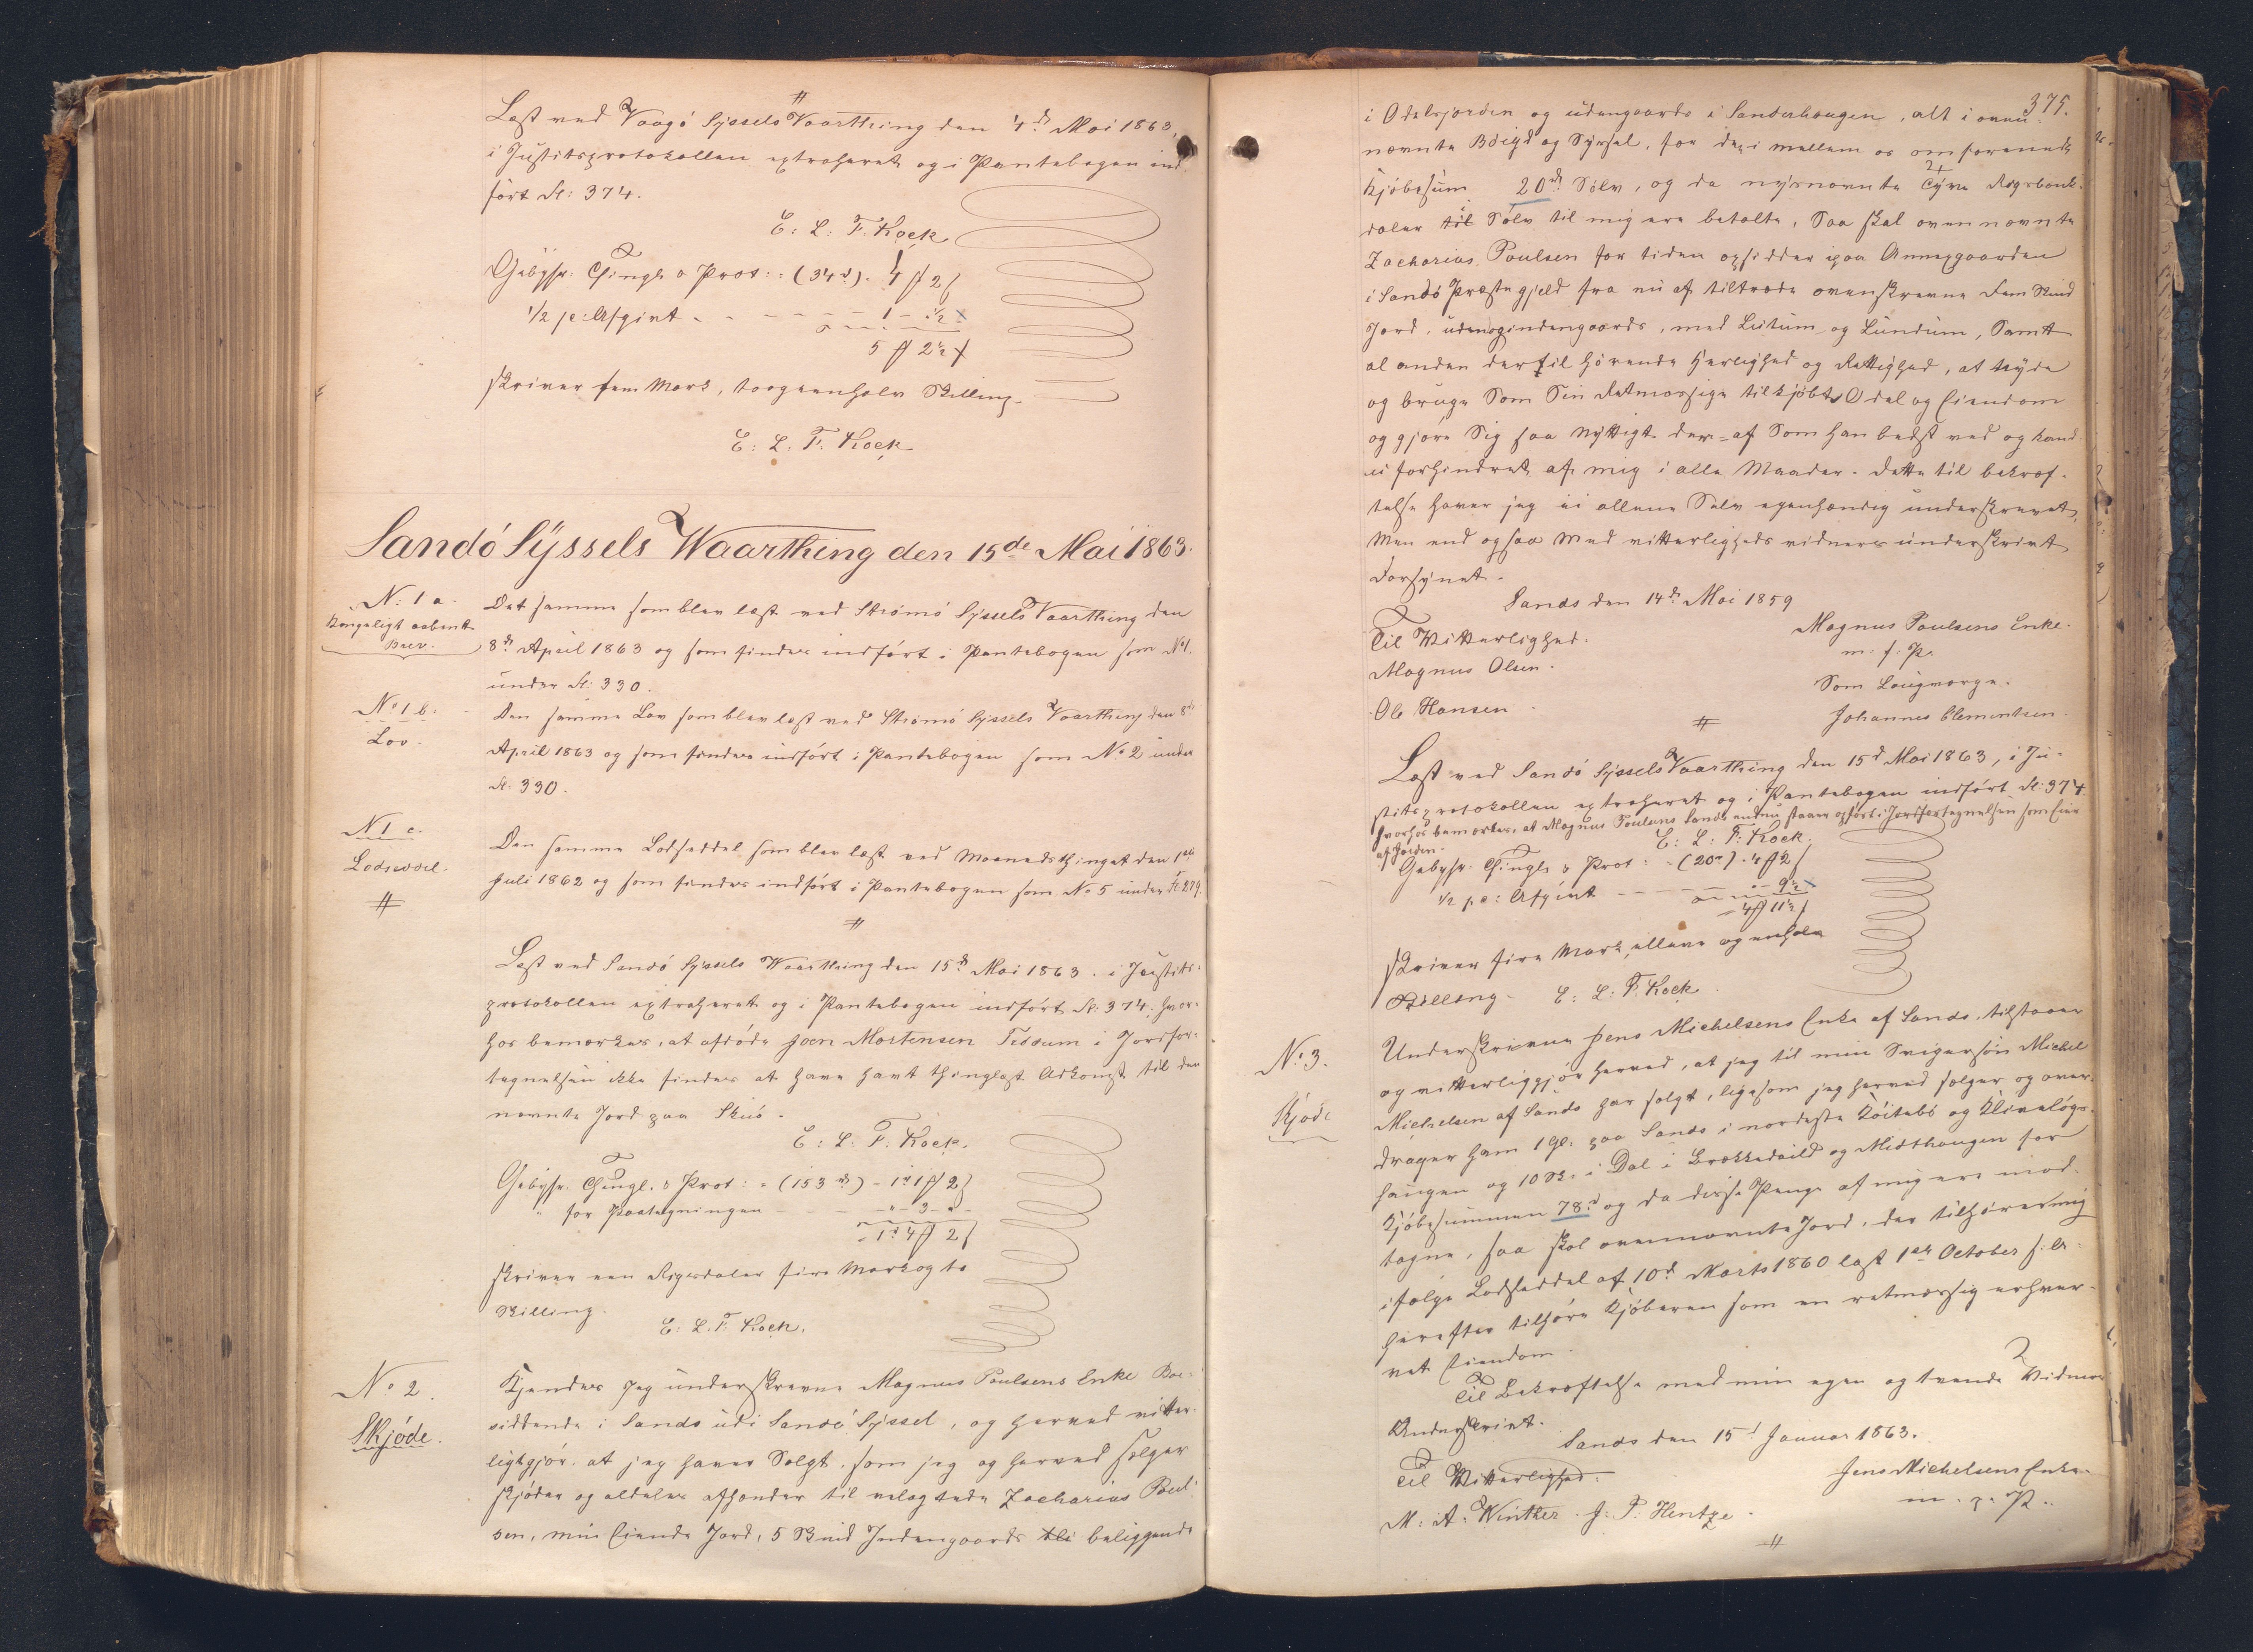 Læst ved Vaagø Syssels Vaarthing den 4de Mai 1863,
i Justitsprotokollen extraheret og i Pantebogen ind-
ført Fl: 374.
E: L: F. Kock
Gebyhr: Thingl. & Prot: = (34rd). 4 ₥ 2 ß
1/2 pc: Afgivt - - - - - 1 - ½ -
5 ₥ 2½ ß
skriver fem Mark, toogeenhalv Skilling.
E: L. F. Kock
Sandö Syssels Waarthing den 15de Mai 1863.
N: 1 a.
Kongeligt aabent
Brev.
Det samme som blev læst ved Strömö Syssels Vaarthing den
8de April 1863 og som findes indført i Pantebogen som No 1.
under Fl: 330.
No 1 b:
Lov.
Den samme Lov som blev læst ved Strömö Syssels Vaarthing den 8de
April 1863 og som findes indført i Pantebogen som No 2 under
Fl: 330.
N 1 c.
Lodseddel.
Den samme Lodseddel som blev læst ved Maanedsthinget den 1ste
Juli 1862 og som findes indført i Pantebogen som No 5 under Fl. 279.
Læst ved Sandö Syssels Waarthing den 15de Mai 1863. i Justits-
protokollen extraheret og i Pantebogen indført Fl: 374; hvor-
hos bemærkes, at afdøde Joen Mortensen Trödum i Jordfor-
tegnelsen ikke findes at have havt thinglæst Adkomst til den
nævnte Jord paa Skuö.
E: L: F: Kock.
Gebyhr. Thingl. & Prot: = (153 rd) - 1rd 1 ₥ 2 ß
" for Paategningen - - - " - 3 - " -
= 1rd 4 ₥ 2 ß
skriver een Rigsdaler fire Mark og to
Skilling.
E: L. F. Kock.
No 2.
Skjöde.
Kjendes Jeg underskrevne Magnus Poulsens Enke Boe-
siddende i Sands udi Sandö Syssel, og herved vitter-
ligtgjør, at jeg haver Solgt, som jeg og herved sælger
skjøder og aldeles afhænder til velagtede Zacharias Poul-
sen, min Eiende Jord, 5 Skind Indengaards beliggende
375.
i Odelsjorden og udengaards i Sanderhaugen, alt i oven-
nævnte Böigd og Syssel, for den i mellem os omforenede
Kjöbesum 20rd Sölv, og da nysnævnte Tyve Rigsbank-
daler til Sölv til mig ere betalte, Saa skal ovennævnte
Zacharias Poulsen for tiden opsidder paa Annexgaarden
i Sandö Præstegjeld fra nu af tiltræde ovenskrevne Fem Skind
Jord, udenogindengaards, med Luttum og Lundum, Samtt
al anden dertil hörende Herlighed og Rettighed, at nyde
og bruge Som Sin Retmæssige tilkjöbte Odel og Eiendom
og gjøre Sig saa nyttigt der=af Som han bedst ved og kand
ei forhindret af mig i alle Maader. Dette til bekræf-
telse haver jeg ei allene Selv egenhændig underskrevet,
Men end ogsaa Med vitterligheds vidners underskrivt
Forsynet.
Sands den 14de Mai 1859
Til Vitterlighed.
Magnus Olsen.
Ole Hansen
Magnus Poulsens Enke.
m. f. P.
Som Laugværge.
Johannes Clementsen.
Læst ved Sandö Syssels Vaarthing den 15de Mai 1863, i Ju-
stitsprotokollen extraheret og i Pantebogen indført Fl: 374.
hvorhos bemærkes, at Magnus Poulsens Sands endnu staaer opført i Jordfortegnelsen som Eier
af Jorden.
E: L: F: Kock.
Gebyhr. Thingl. & Prot: = (20rd). 4 ₥ 2 ß
1/2 pc: Afgivt - - - " - 9½
= 4 ₥ 11½ ß
skriver fire Mark, elleve og enhalv
Skilling. E: L: F. Kock.
No. 3.
Skjöde
Underskrivne Jens Michelsens Enke af Sands, tilstaaer
og vitterliggjør herved, at jeg til min Svigersøn Michel
Michelsen af Sands har solgt, ligesom jeg herved sælger og over-
drager ham 1 Gl: paa Sands i nordeste og
haugen og 10 Sk: i Dal i og Midthaugen for
Kjöbesummen 78rd og da disse Penge af mig ere mod-
tagne, saa skal ovennævnte Jord, der tilhører mig
ifølge Lodseddel af 10de Marts 1860 læst 1ste October s: A:
herefter tilhøre Kjöberen som en retmæssig erhver-
vet Eiendom.
Til Bekræftelse med min egen og tvende Vidners
Underskrivt.
Sands den 15de Januar 1863.
Til Vitterlighed:
M: A: Winther. J: P: Hentze.
Jens Michelsens Enke.
m. p. P.